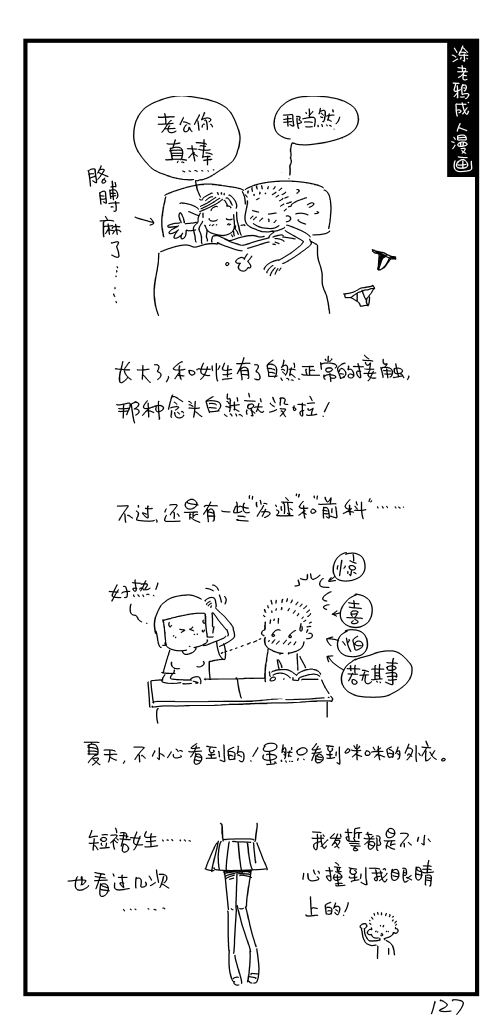 涂老鸦成人漫画
老公你
真棒
……
那当然!
胳膊麻了……
长大了,和女性有了自然正常的接触,
那种念头自然就没啦!
不过,还是有一些“劣迹”和“前科”……
好热!
惊
喜
怕
若无其事
夏天,不小心看到的!虽然只看到咪咪的外衣。
短裙女生……
也看过几次
……
我发誓都是不小
心撞到我眼睛
上的!
127